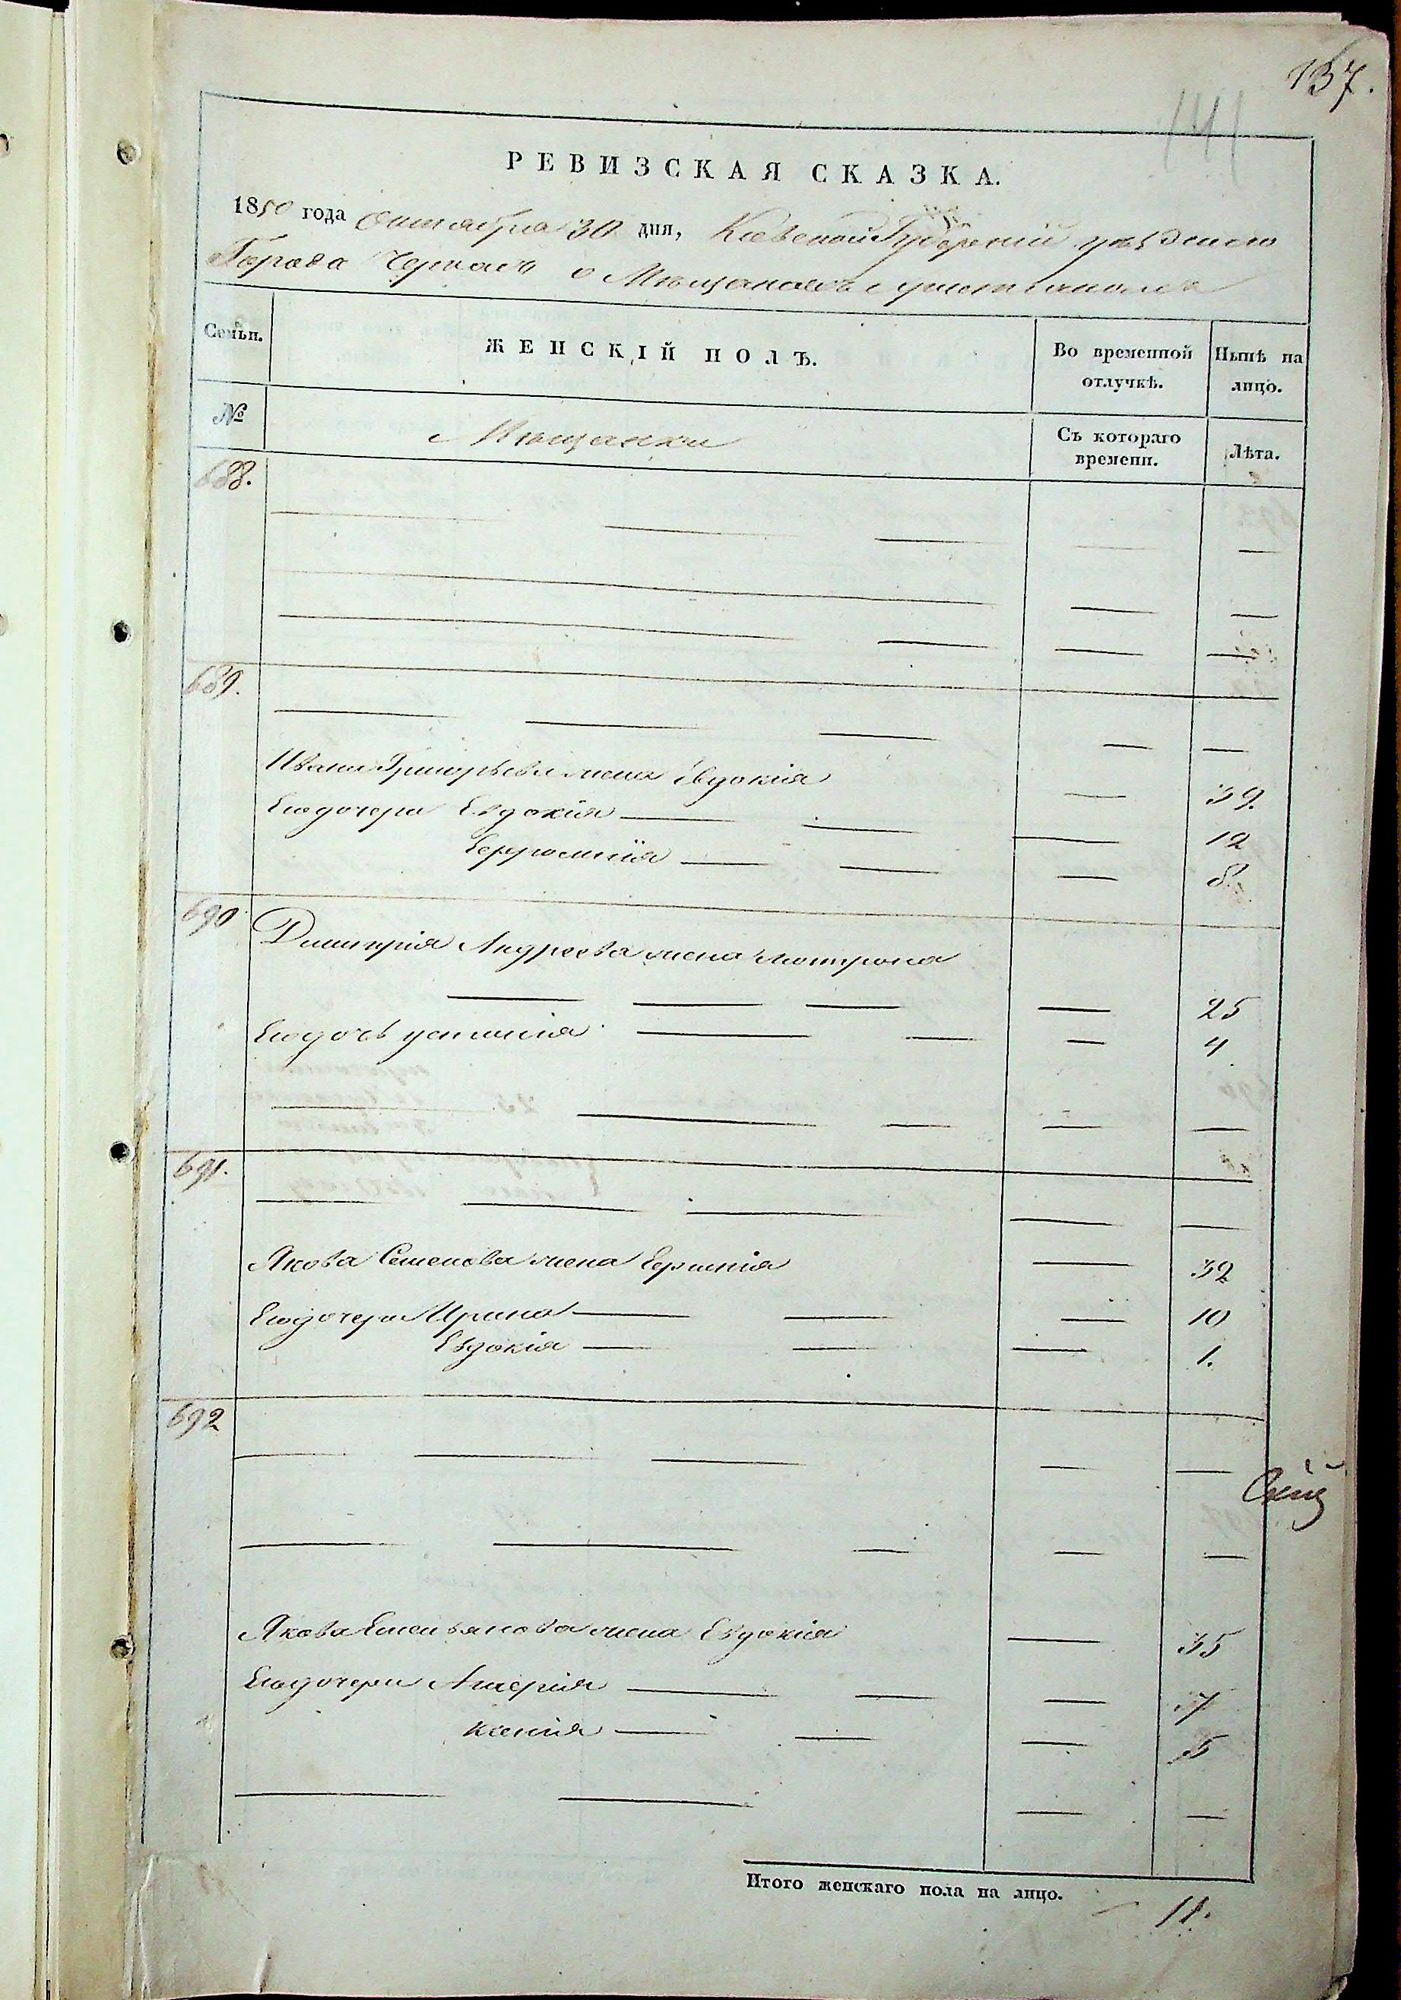 137.
141
РЕВИЗСКАЯ СКАЗКА.
1850 года Октября 30 дня, Киевской Губернии уѣзднаго
Города Черкасъ о Мѣщанахъ христіанахъ
Семьи. ЖЕНСКІЙ ПОЛЪ. Во временной отлучкѣ. Нынѣ на лицо.
№ Мѣщанки Съ котораго времени. Лѣта.
688.
689.
Ивана Григорьева жена Евдокія 39.
Его дочери Евдокія 12
8
690
Димитрія Андреева жена Мотрона
25
Его дочь Устинія 4
691.
Якова Семенова жена Ефимія 32
Его дочери Ирина 10
Евдокія 1.
692
Якова Емельянова жена Евдокія 35
Его дочери 7
Ксенія 5
Итого женскаго пола на лицо. 11.